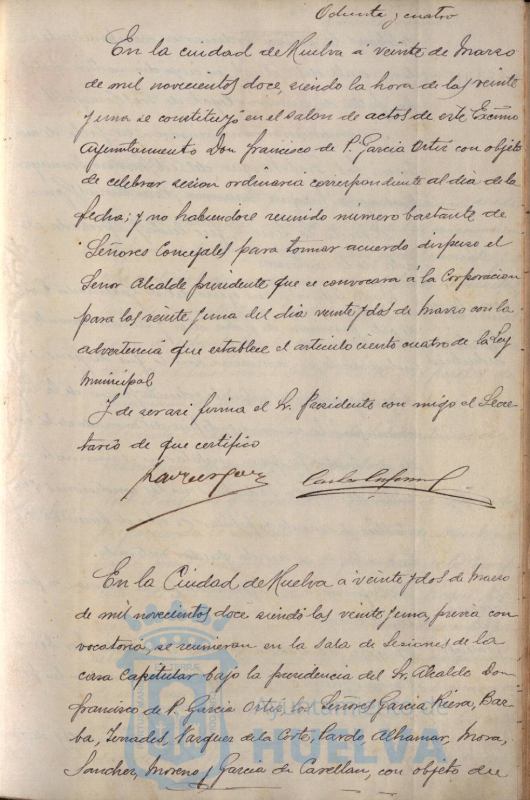 Ochenta y cuatro
En la ciudad de Huelva á veinte de Marzo
de mil novecientos doce, siendo la hora de las veinte
y una se constituyó en el salon de actos de este Excmo
Ayuntamiento Don Francisco de P. Garcia Ortiz con objeto
de celebrar sesion ordinaria correspondiente al dia de la
fecha; y no habiendose reunido número bastante de
Señores Concejales para tomar acuerdo dispuso el
Señor Alcalde presidente que se convocara á la Corporacion
para las veinte y una del dia veinte y dos de Marzo con la
advertencia que establece el articulo ciento cuatro de la Ley
Municipal
Y de ser asi firma el Sr. Presidente con migo el Secre-
tario de que certifico
En la Ciudad de Huelva á veinte y dos de Marzo
de mil novecientos doce siendo las veinte y una, previa con
vocatoria, se reunieron en la Sala de Sesiones de la
casa Capitular bajo la presidencia del Sr. Alcalde Don
Francisco de P. Garcia Ortiz los Señores Garcia Riera, Bar-
ba, Terrades, Vazquez de la Corte, Pardo Alhamar, Mora,
Sanchez, Moreno y Garcia de Castellan, con objeto de
Ayuntamiento de
HUELVA